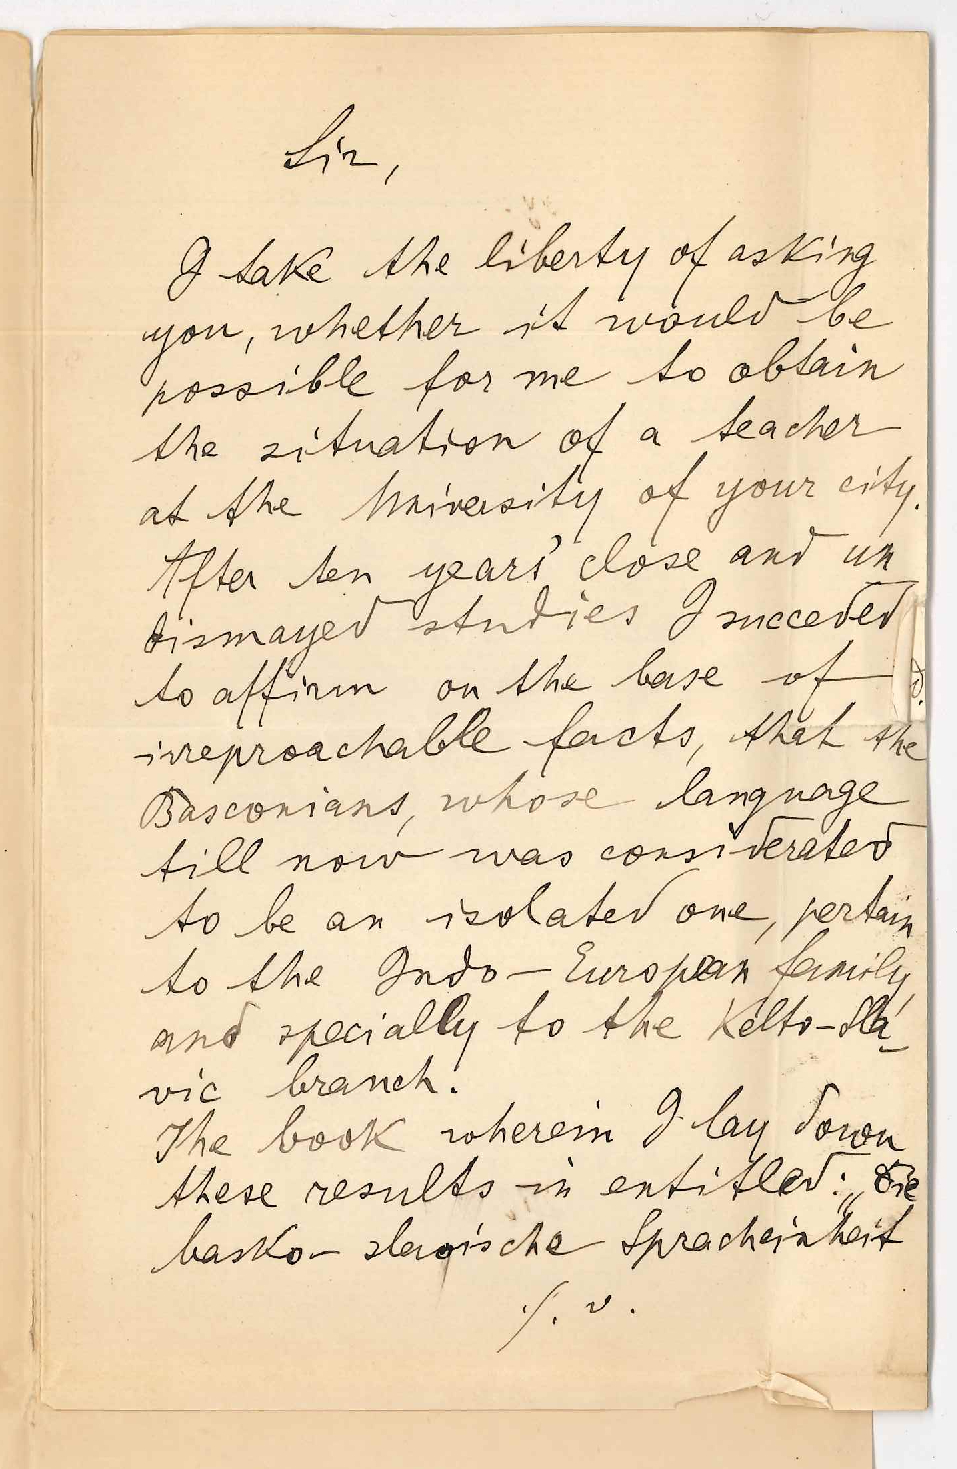 Sir,
I take the liberty of asking
you, whether it would be
possible for me to obtain
the situation of a teacher
at the University of your city.
After ten years' close and un
dismayed studies I succeded
to affirm on the base of
irreproachable facts, that the
Basconians, whose language
till now was considerated
to be an isolated one, pertain
to the Indo-European family,
and specially to the Kelto-Sla-
vic branch.
The book wherein I lay down
these results in entitled: „Die
basko-slavische Spracheinheit
./. v.